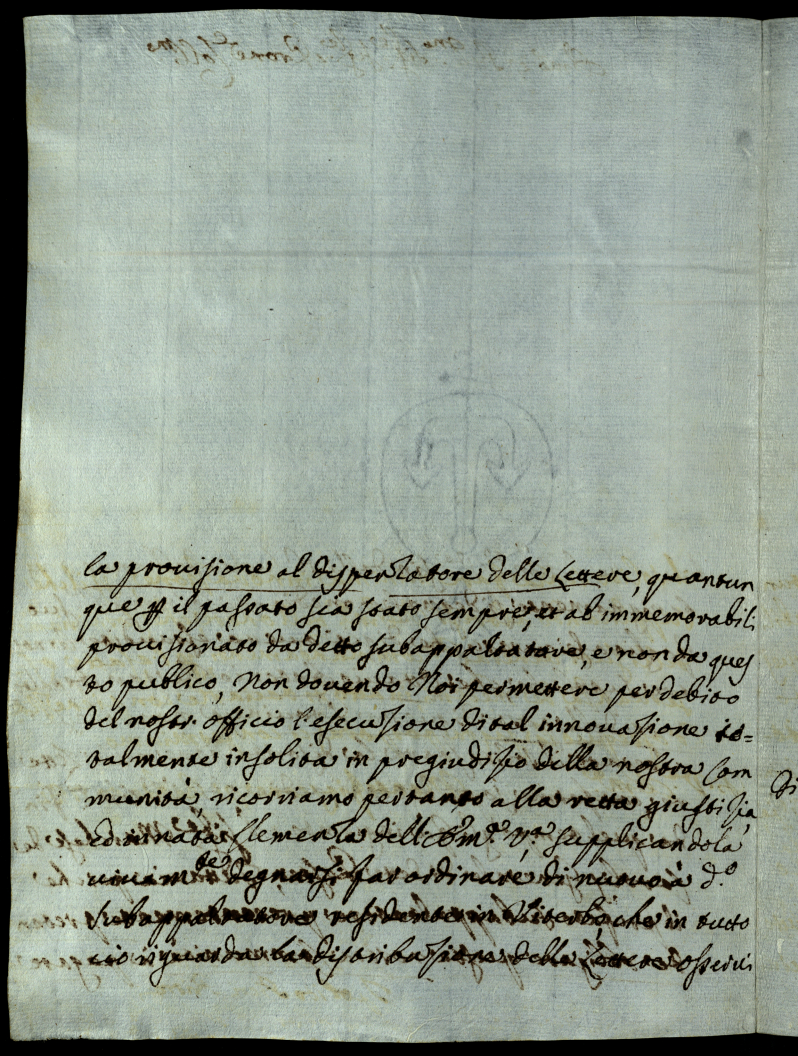 la provisione al dispenzatore delle Lettere, quantun
que p il passato sia stato sempre, et ab immemorabili
provisionato da detto subappaltatore, e non da ques
to publico, Non dovendo Noi permettere per debito
del nostr. officio l'esecuzione di tal innovazione to=
talmente insolita in pregiudizio della nostra Com
munità, ricorriamo pertanto alla retta giustizia,
ed innata Clemenza dell' Em.ª V.ª supplicandola
vivam.te degnarsi far ordinare di nuovo à d.º
Subappaltatore residente in Viterbo, che in tutto
ciò riguarda la distribuzione delle Lettere osservi